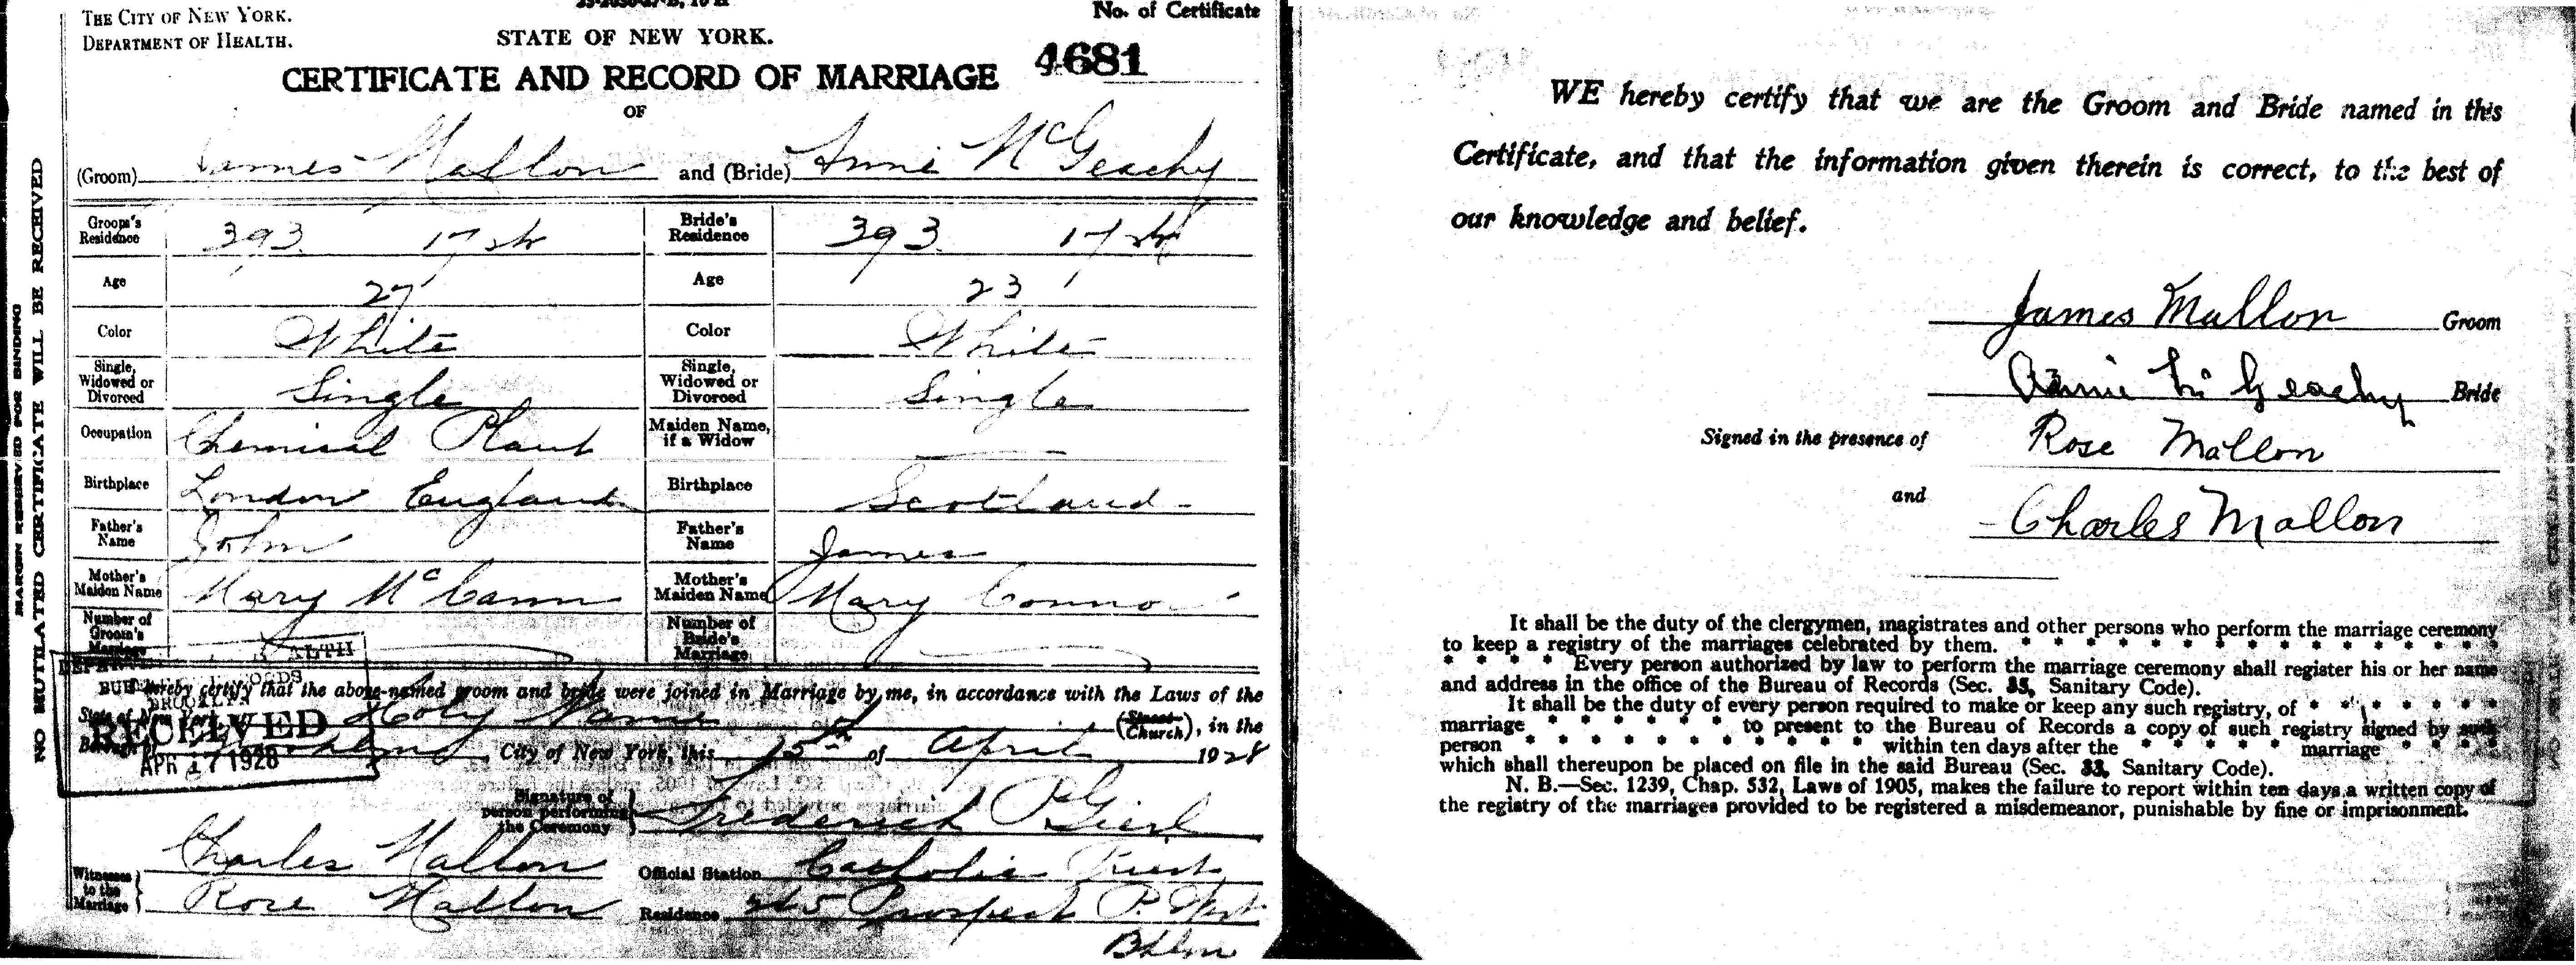 THE CITY OF NEW YORK.
DEPARTMENT OF HEALTH.
STATE OF NEW YORK.
No. of Certificate
4681
CERTIFICATE AND RECORD OF MARRIAGE
OF
(Groom) James Mallon and (Bride) Annie McGeachy
Groom's Residence 393 17 st Bride's Residence 393 17 st
Age 27 Age 23
Color White Color White
Single, Widowed or Divorced Single Single, Widowed or Divorced Single
Occupation Chemical Plant Maiden Name, if a Widow
Birthplace London England Birthplace Scotland
Father's Name John Father's Name James
Mother's Maiden Name Mary McCann Mother's Maiden Name Mary Connor
Number of Groom's Marriage Number of Bride's Marriage
hereby certify that the above-named groom and bride were joined in Marriage by me, in accordance with the Laws of the
State of New York, at Holy Name (Street Church), in the
Borough of Brooklyn, City of New York, this 15th of April 1928
BROOKLYN
RECEIVED
APR 17 1928
Signature of person performing the Ceremony Frederick Gierl
Witnesses to the Marriage
Charles Mallon Official Station Catholic Priest
Rose Mallon Residence 245 Prospect P. West
Bklyn
MARGIN RESERVED FOR BINDING
NO MUTILATED CERTIFICATE WILL BE RECEIVED
WE hereby certify that we are the Groom and Bride named in this
Certificate, and that the information given therein is correct, to the best of
our knowledge and belief.
James Mallon Groom
Annie McGeachy Bride
Signed in the presence of Rose Mallon
and Charles Mallon
It shall be the duty of the clergymen, magistrates and other persons who perform the marriage ceremony
to keep a registry of the marriages celebrated by them. * * * * * * * * * * * * *
* * * * Every person authorized by law to perform the marriage ceremony shall register his or her name
and address in the office of the Bureau of Records (Sec. 33, Sanitary Code).
It shall be the duty of every person required to make or keep any such registry, of * * * * * *
marriage * * * * * * to present to the Bureau of Records a copy of such registry signed by such
person * * * * * * * * * * * * within ten days after the * * * * * marriage * * *
which shall thereupon be placed on file in the said Bureau (Sec. 33, Sanitary Code).
N. B.—Sec. 1239, Chap. 532, Laws of 1905, makes the failure to report within ten days a written copy of
the registry of the marriages provided to be registered a misdemeanor, punishable by fine or imprisonment.